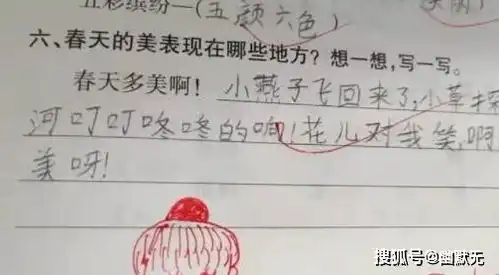 五彩缤纷—(五颜六色)
六、春天的美表现在哪些地方？想一想,写一写。
春天多美啊！小燕子飞回来了,小草
河叮叮咚咚的响！花儿对我笑,啊
美呀！
搜狐号@幽默无